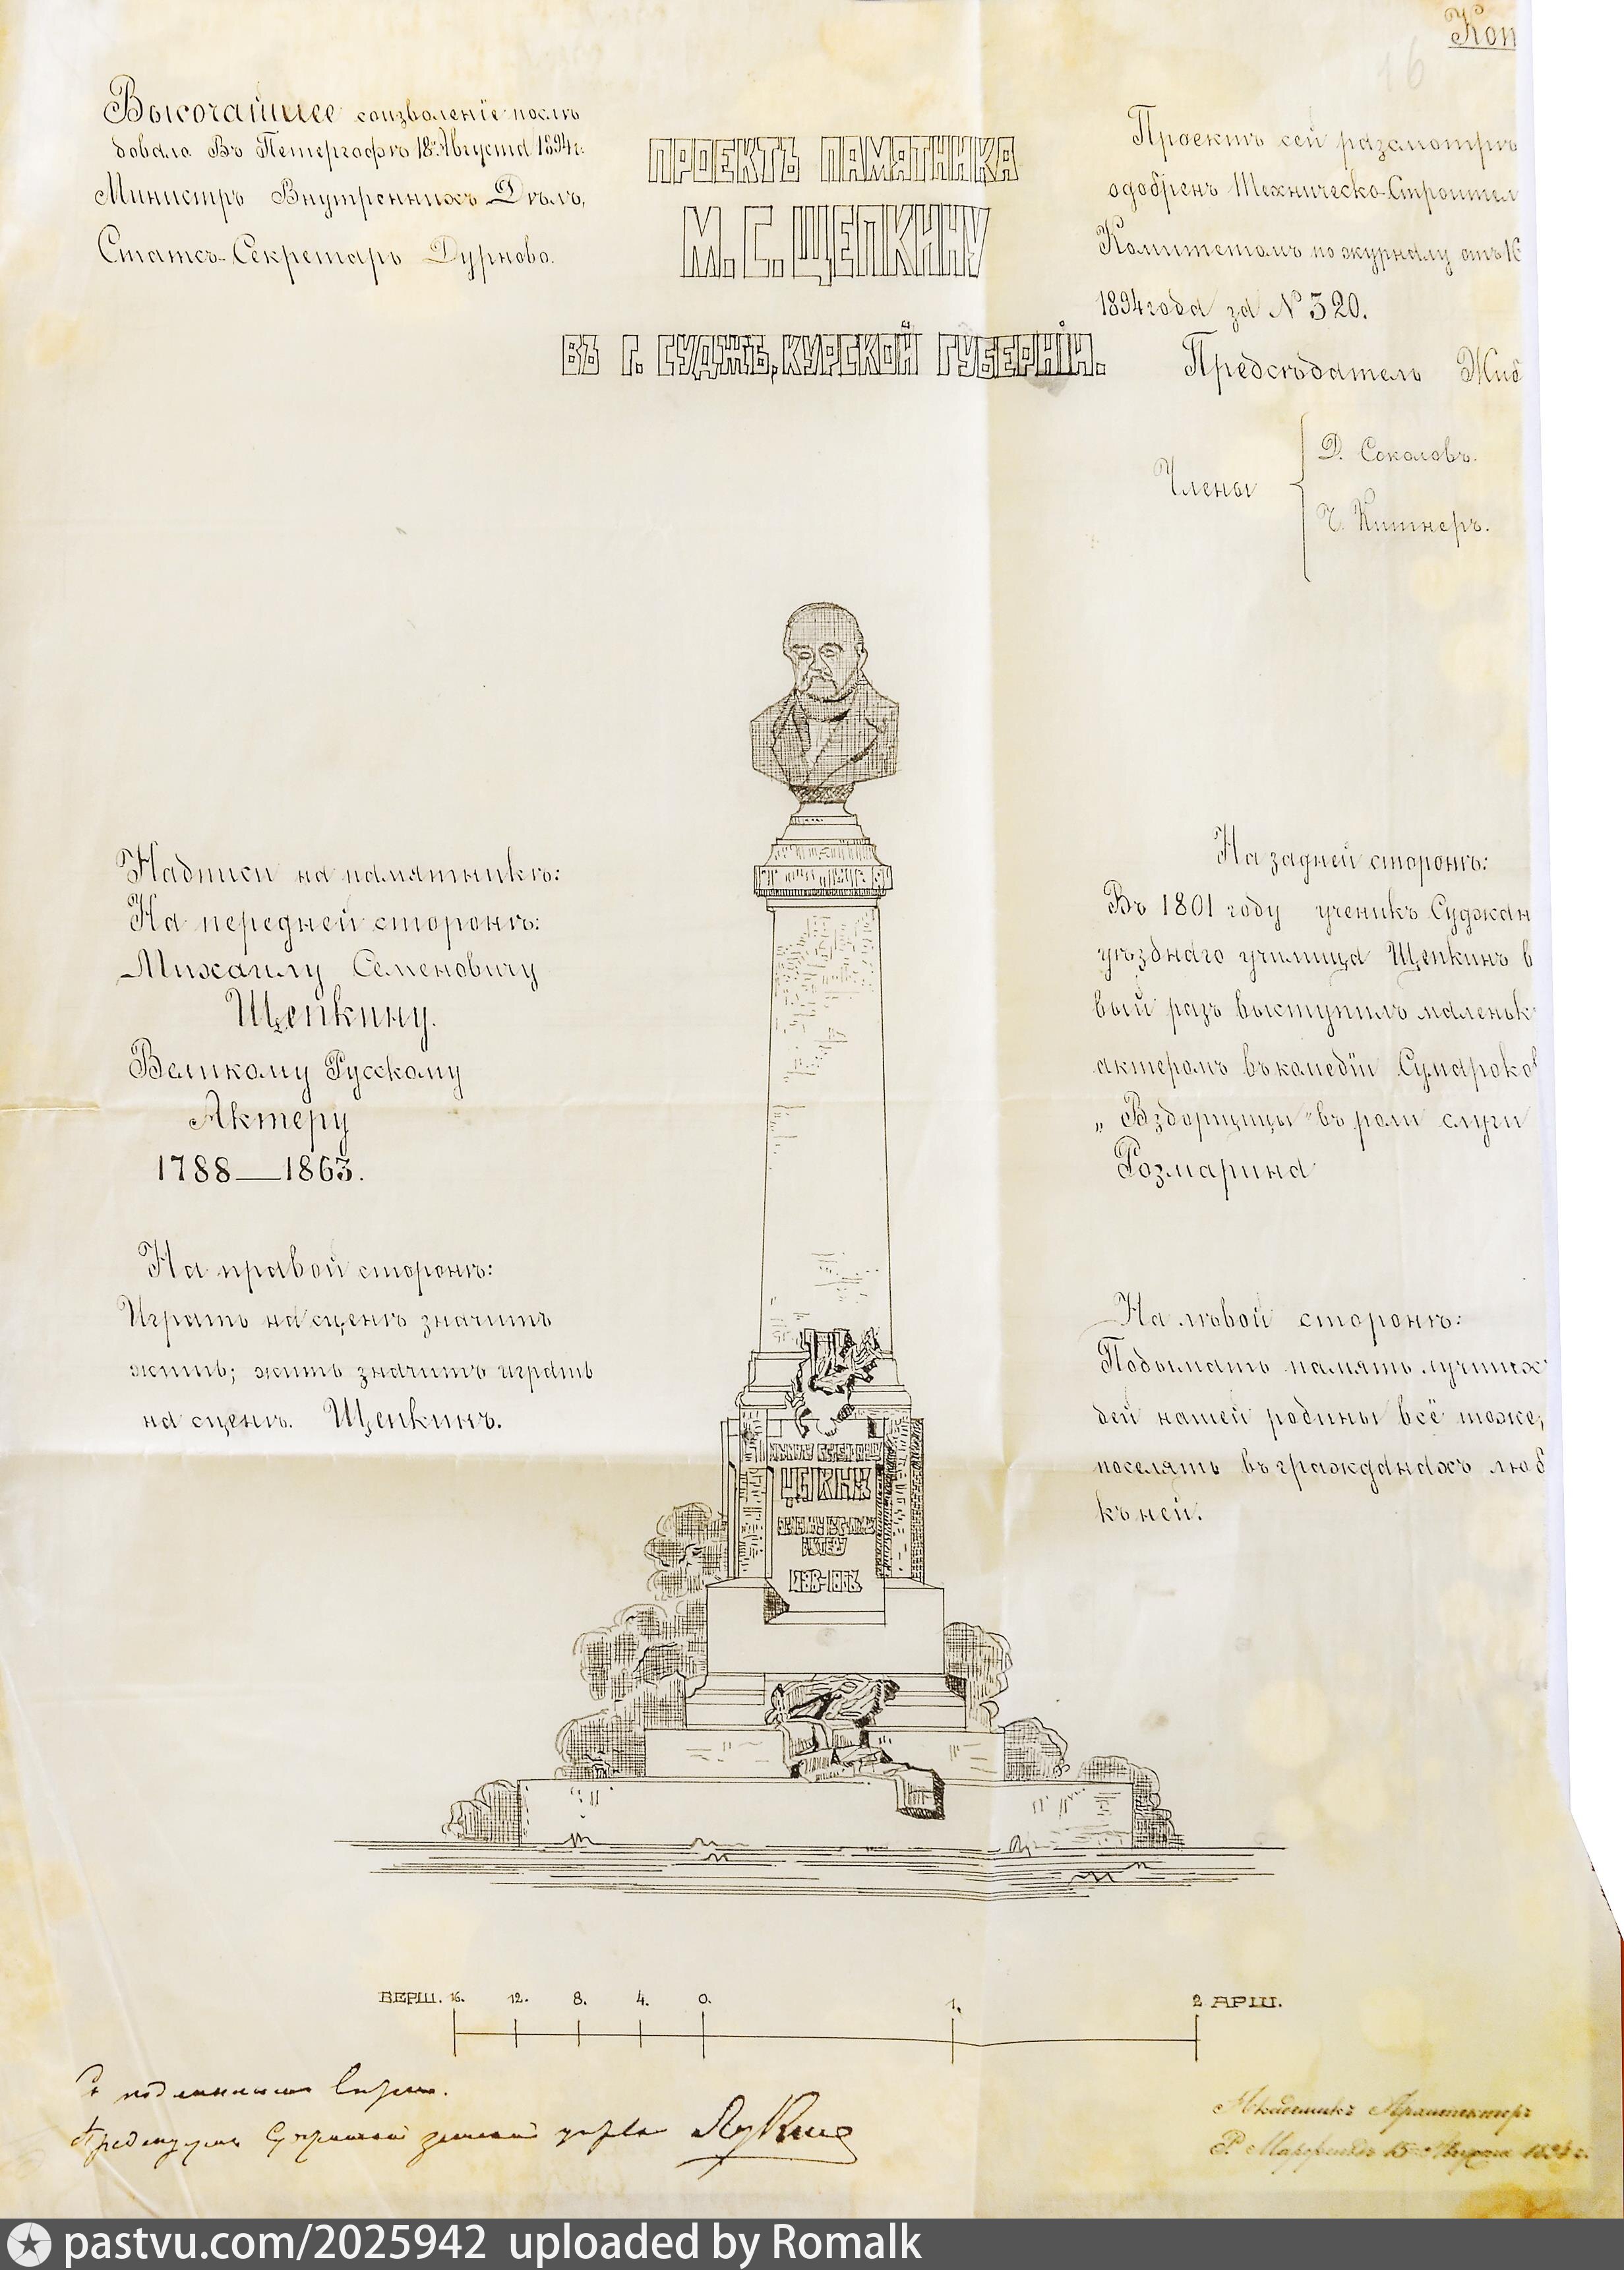 Коп
16
Высочайшее соизволеніе послѣ
довало Въ Петергофѣ 18 Августа 1894 г.
Министръ Внутреннихъ Дѣлъ,
Статсъ-Секретарь Дурново.
ПРОЕКТЪ ПАМЯТНИКА
М. С. ЩЕПКИНУ
ВЪ Г. СУДЖѢ, КУРСКОЙ ГУБЕРНІИ.
Проектъ сей разсмотрѣ
одобренъ Техническо-Строител
Комитетомъ по журналу отъ 16
1894 года за № 320.
Предсѣдатель Жиб
Члены
Д. Соколовъ.
Китнеръ.
Надписи на памятникѣ:
На передней сторонѣ:
Михаилу Семеновичу
Щепкину.
Великому Русскому
Актеру
1788—1863.
На правой сторонѣ:
Играть на сценѣ значитъ
жить; жить значитъ играть
на сценѣ. Щепкинъ.
На задней сторонѣ:
Въ 1801 году ученикъ Суджан
уѣзднаго училища Щепкинъ в
вый разъ выступилъ маленьк
актеромъ въ комедіи Сумароко
„Вздорщицы" въ роли слуги
Розмарина
На лѣвой сторонѣ:
Подымать память лучшихъ
дей нашей родины всё тоже,
поселять въ гражданахъ люб
къ ней.
ЩЕПКИНУ
АКТЕРУ
1788-1863
ВЕРШ. 16. 12. 8. 4. 0. 1. 2 АРШ.
Съ подлиннымъ вѣрно.
Предсѣдатель земской управы
Академикъ Архитекторъ
Р. Марфельдъ 15 Августа 1894 г.
pastvu.com/2025942 uploaded by Romalk